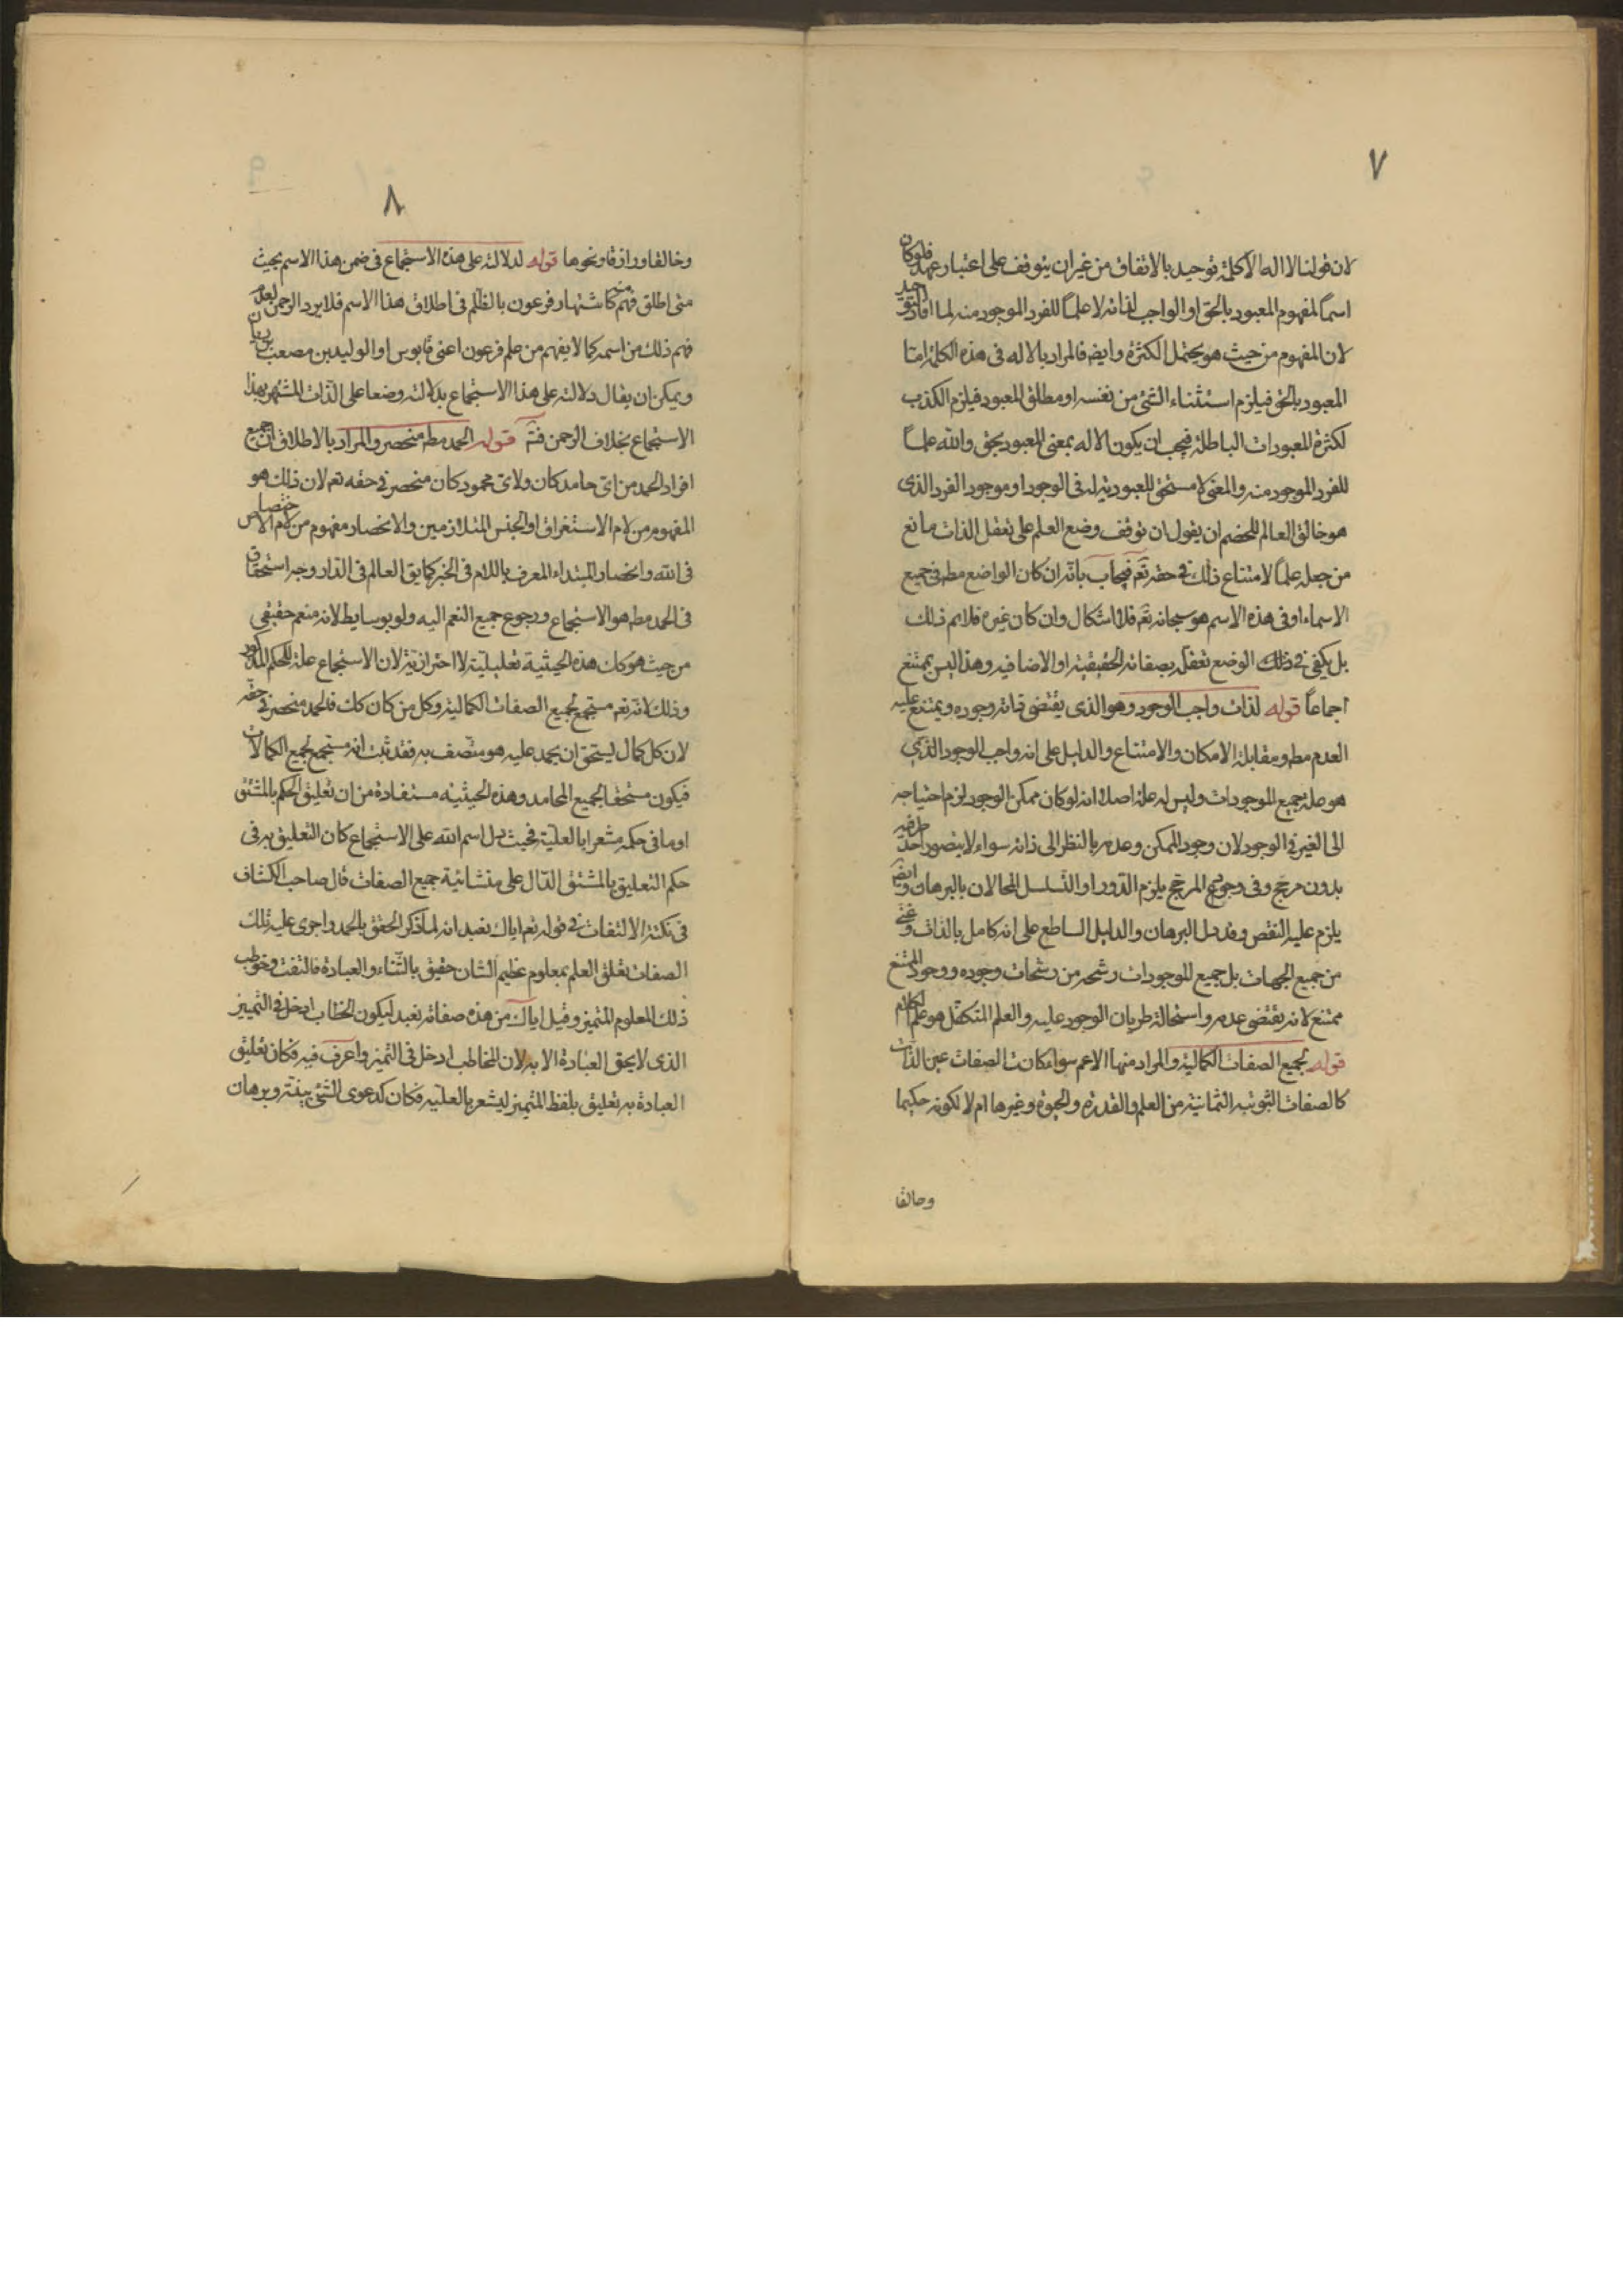 ٧
لان قولنا لا اله الا الله كلمة توحيد بالاتفاق من غير ان يتوقف على اعتبار عهد فلو كان
اسماً لمفهوم المعبود بالحق او الواجب لذاته لا علماً للفرد الموجود منه لما افاد التوحيد
لان المفهوم من حيث هو يحتمل الكثرة وايضا فالمراد بالاله فى هذه الكلمة اما
المعبود بالحق فيلزم استثناء الشئ من نفسه او مطلق المعبود فيلزم الكذب
لكثرة المعبودات الباطلة فيجب ان يكون الاله بمعنى المعبود بحق والله علماً
للفرد الموجود منه والمعنى لا مستحق للعبودية له فى الوجود او موجود الفرد الذى
هو خالق العالم للخصم ان يقول ان توقف وضع العلم على تعقل الذات مانع
من جعله علماً لامتناع ذلك فى حقه تعم فيجاب بانه ان كان الواضع مطم فى جميع
الاسماء او فى هذه الاسم هو سبحانه تعم فلا اشكال وان كان غيره فلا نم ذلك
بل يكفى فى ذلك الوضع تعقله بصفاته الحقيقية او الاضافيه وهذا ليس بممتنع
اجماعاً قوله لذات واجب الوجود وهو الذى يقتضى ذاته وجوده ويمتنع عليه
العدم مطم ومقابله الامكان والامتناع والدليل على انه واجب الوجود الذى
هو علة جميع الموجودات وليس له علة اصلا انه لو كان ممكن الوجود لزم احتياجه
الى الغير فى الوجود لان وجود الممكن وعدمه بالنظر الى ذاته سواء لا يتصور احد طرفيه
بدون مرجح وفى وجود المرجح يلزم الدور او التسلسل المحالان بالبرهان وايضم
يلزم عليه النقص وقد دل البرهان والدليل الساطع على انه كامل بالذات وغنى
من جميع الجهات بل جميع الموجودات رشحه من رشحات وجوده ووجود الممتنع
ممتنع لانه يقتضى عدمه واستحالة طريان الوجود عليه والعلم المتكفل هو علم الكلام
قوله لجميع الصفات الكمالية والمراد منها الاعم سواء كانت الصفات عين الذات
كالصفات الثبوتيه الثمانية من العلم والقدرة والحيوة وغيرها ام لا لكونه حكيما
وخالقا
٨
وخالقا ورازقا ونحوها قوله لدلالته على هذه الاستجماع فى ضمن هذا الاسم بحيث
متى اطلق فهم منه كاشتهار فرعون بالظلم فى اطلاق هذا الاسم فلا يرد الرحمن لعلم
فهم ذلك من اسمه كما لا يفهم من علم فرعون اعنى قابوس او الوليد بن مصعب بن ريان
ويمكن ان يقال دلالته على هذا الاستجماع بدلالته وضعا على الذات المشتهر بهذا
الاستجماع بخلاف الرحمن فتم قوله الحمد مطم منحصر والمراد بالاطلاق ان جميع
افراد الحمد من اى حامد كان ولاى محمود كان منحصر فى حقه تعم لان ذلك هو
المفهوم من لام الاستغراق او الجنس المتلازمين والانحصار مفهوم من لام الاختصاص
فى الله وانحصار المبتداء المعرف باللام فى الخبر كما يق العالم فى الدار وجه استحقاق
فى الحمد مطم هو الاستجماع ورجوع جميع النعم اليه ولو بوسايط لانه منعم حقيقى
من حيث هو كك هذه الحيثية تعليلية لا احترازية لان الاستجماع علة للحكم المذكور
وذلك انه تعم مستجمع لجميع الصفات الكمالية وكل من كان كك فالحمد منحصر فى حقه
لان كل كمال يستحق ان يحمد عليه هو متصف به فقد ثبت انه مستجمع لجميع الكمالات
فيكون مستحقا لجميع المحامد وهذه الحيثية مستفادة من ان تعليق الحكم بالمشتق
او ما فى حكمه مشعرا بالعلية فحيث دل اسم الله على الاستجماع كان التعليق به فى
حكم التعليق بالمشتق الدال على منشائية جميع الصفات قال صاحب الكشاف
فى نكتة الالتفات فى قوله تعم اياك نعبد انه لما ذكر الحقيق بالحمد واجرى عليه تلك
الصفات تعلق العلم بمعلوم عظيم الشان حقيق بالثناء والعبادة فالتفت وخوطب
ذلك المعلوم المتميز وقيل اياك من هذه صفاته نعبد ليكون الخطاب ادخل فى التمييز
الذى لا يحق العبادة الا به لان المخاطب ادخل فى التميز واعرف فيه فكان تعليق
العبادة به تعليق بلفظ المتميز ليشعر بالعليه فكان كدعوى الشئ ببينة وبرهان